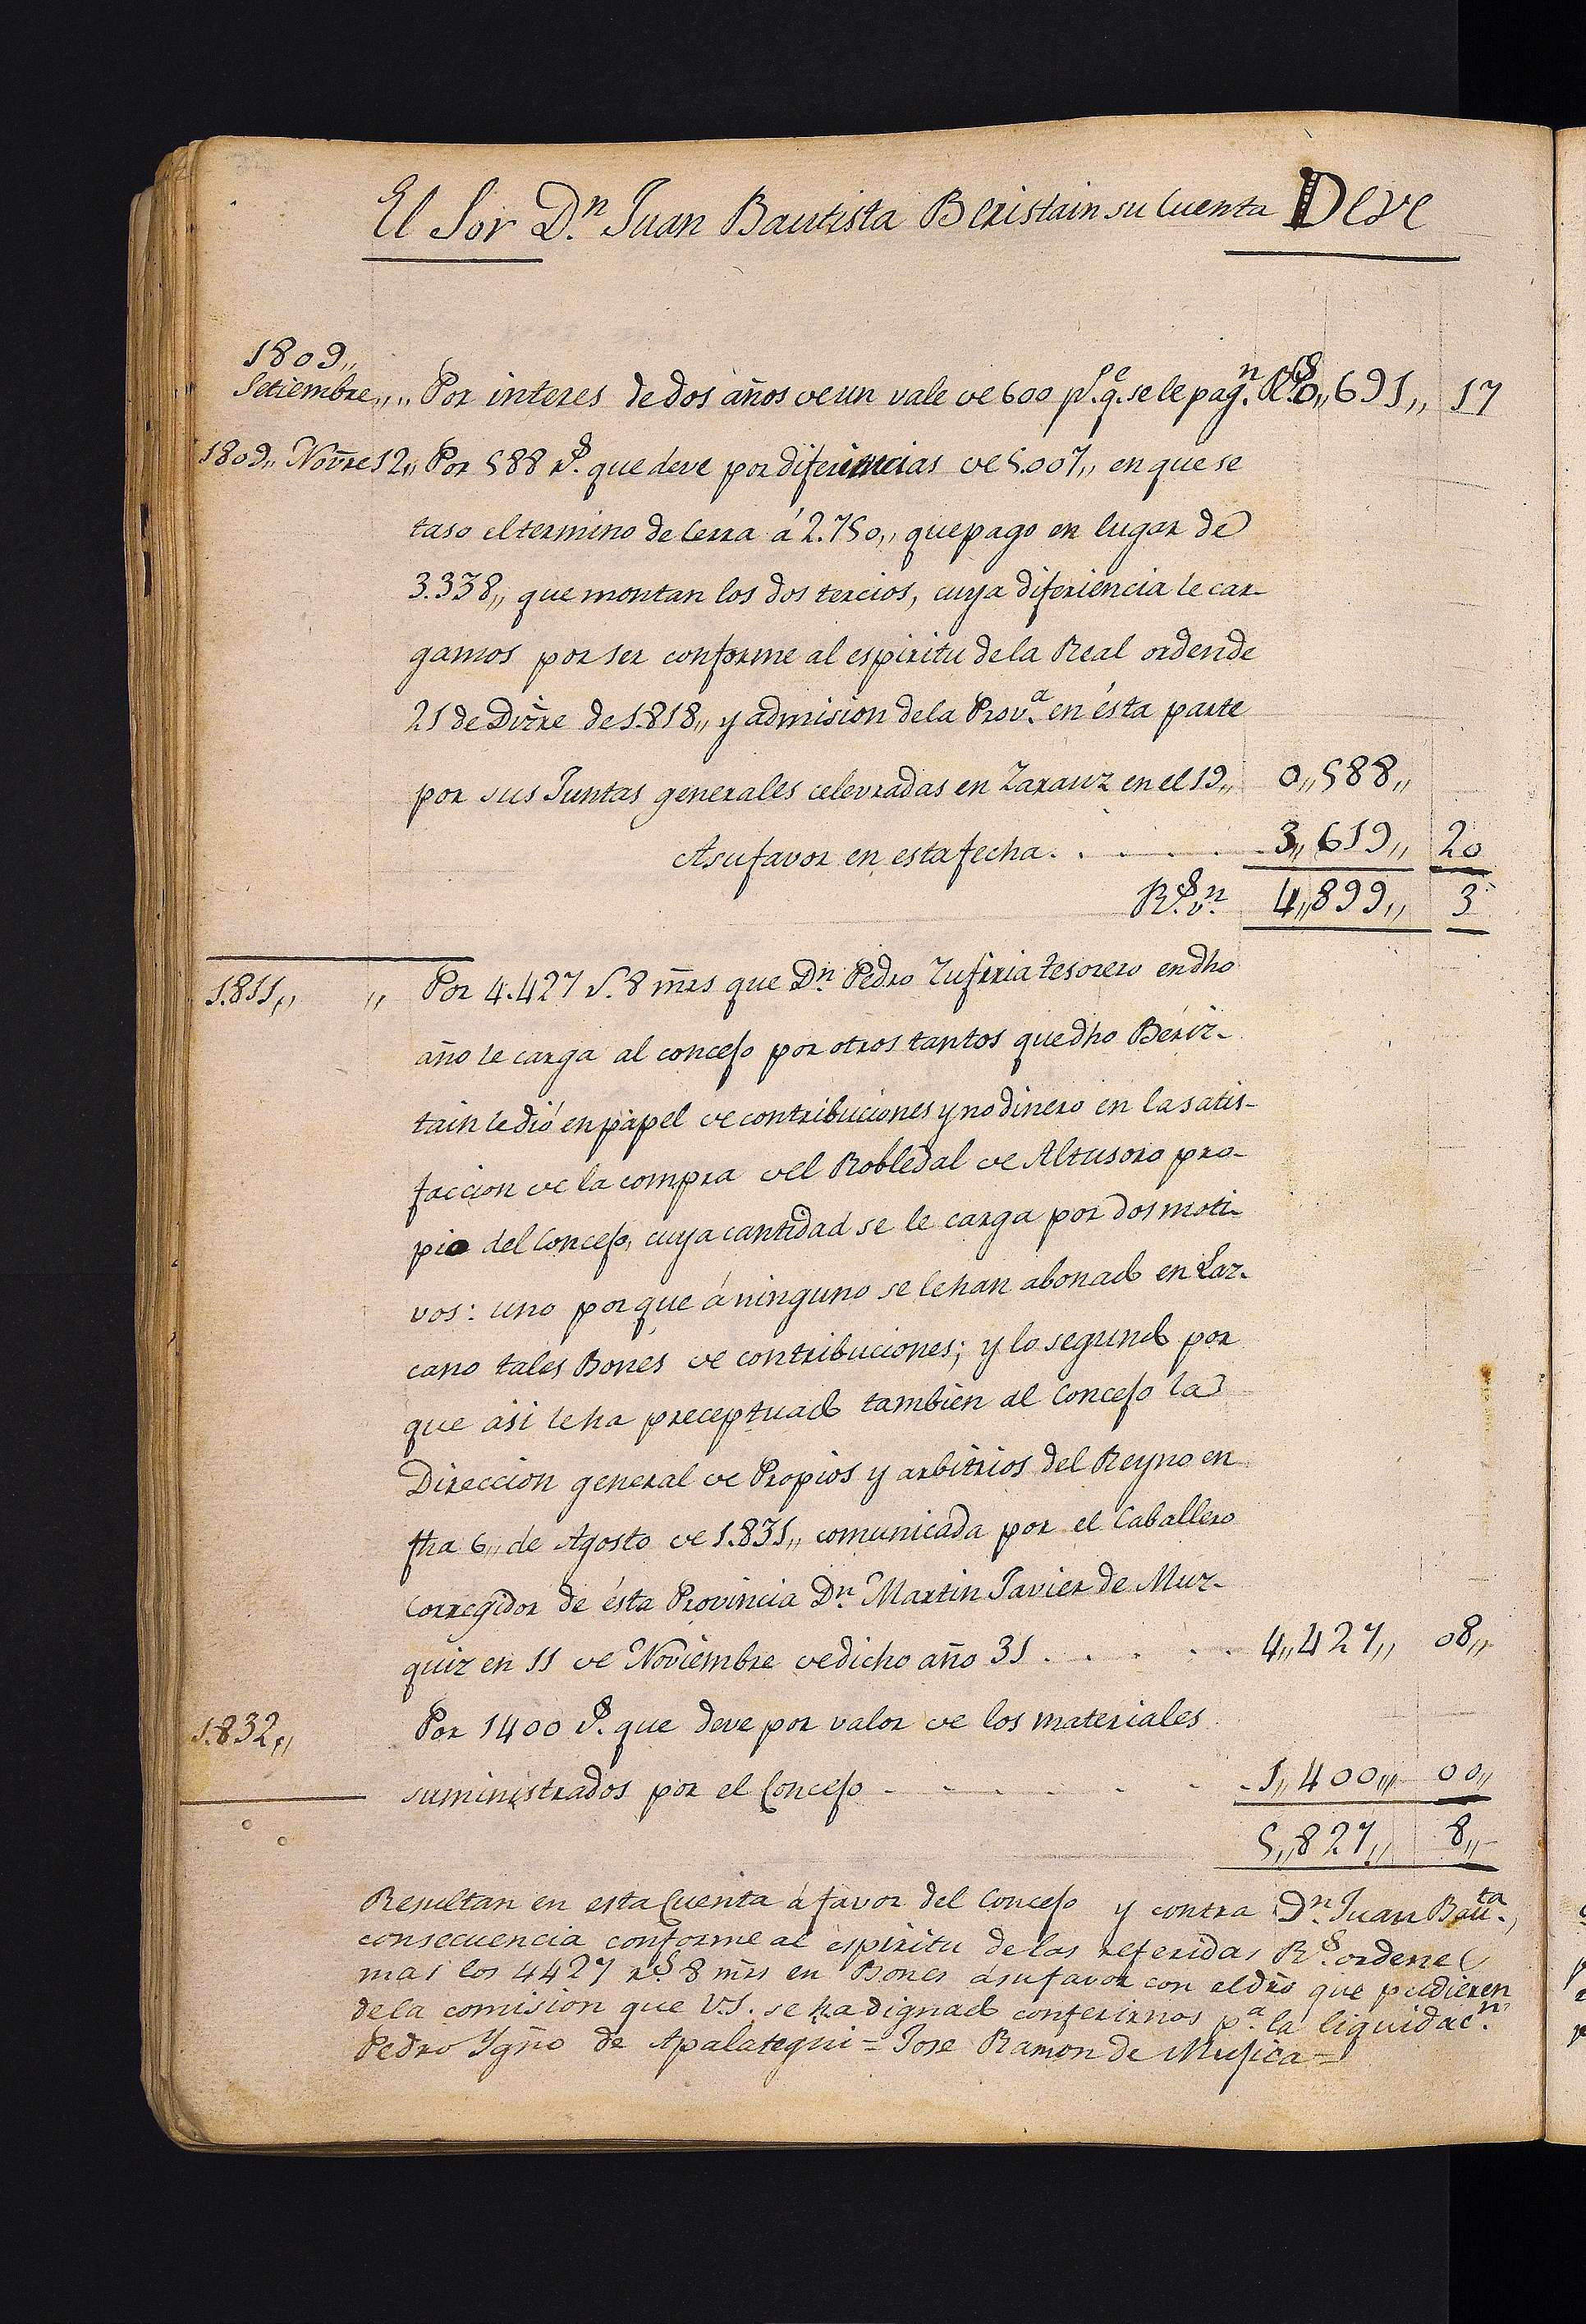 El Sor D.ⁿ Juan Bautista Beristain su Cuenta Deve
1809,,
Setiembre,,,, Por interes de dos años de un vale de 600 pˢ. q.ᵉ se le pag.ⁿ Rˢ 0,,691,, 17
1809,, Nov̄re 12,, Por 588 rˢ. que deve por diferiencias de 5.007,, en que se
taso el termino de Cerra á 2.750,, que pago en lugar de
3.338,, que montan los dos tercios, cuya diferiencia le car-
gamos por ser conforme al espiritu de la Real orden de
21 de Diz̄re de 1.818,, y admision de la Prov.ᵃ en ésta parte
por sus Juntas generales celevradas en Zarauz en el 19,, 0,,588,,
A su favor en esta fecha. . . . . . 3,,619,, 20
Rˢ. v.ⁿ 4,,899,, 3
1.811,, ,, Por 4.427 rˢ. 8 m̄rs que Dⁿ. Pedro Zufiria tesorero en dho
año le carga al concejo por otros tantos que dho Beriz-
tain le dió en papel de contribuciones y no dinero en la satis-
faccion de la compra del Robledal de Altusoro pro-
pio del Concejo, cuya cantidad se le carga por dos moti-
vos: uno por que á ninguno se le han abonado en Laz-
cano tales Bones de contribuciones; y lo segundo por
que asi le ha preceptuado tambien al Concejo la
Direccion general de Propios y arbitrios del Reyno en
fha 6,, de Agosto de 1.831,, comunicada por el Caballero
Corregidor de ésta Provincia Dⁿ. Martin Javier de Muz-
quiz en 11 de Noviembre de dicho año 31 . . . . . 4,,427,, 08,,
1.832,, Por 1400 rˢ. que deve por valor de los materiales
suministrados por el Concejo - - - - - - 1,,400,, 00,,
5,,827,, 8,,
Resultan en esta Cuenta á favor del Concejo y contra Dⁿ. Juan Bau.ᵗᵃ,
consecuencia conforme al espiritu de las referidas Rˢ. ordenes
mas los 4427 rˢ 8 m̄rs en Bones á su favor con el dr̄o que pudieren
de la comision que V.S. se ha dignado conferirnos p.ᵃ la liquidac.ⁿ
Pedro Ygn̄o de Apalategui = Jose Ramon de Mujica =